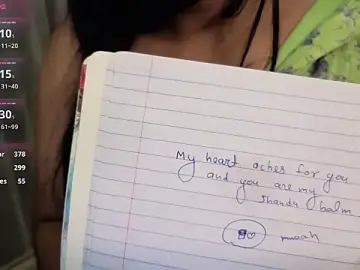 10
11~20
15
31~40
30
61~99
or 378
299
es 55
My heart aches for you
and you are my
Jhandu balm
muah